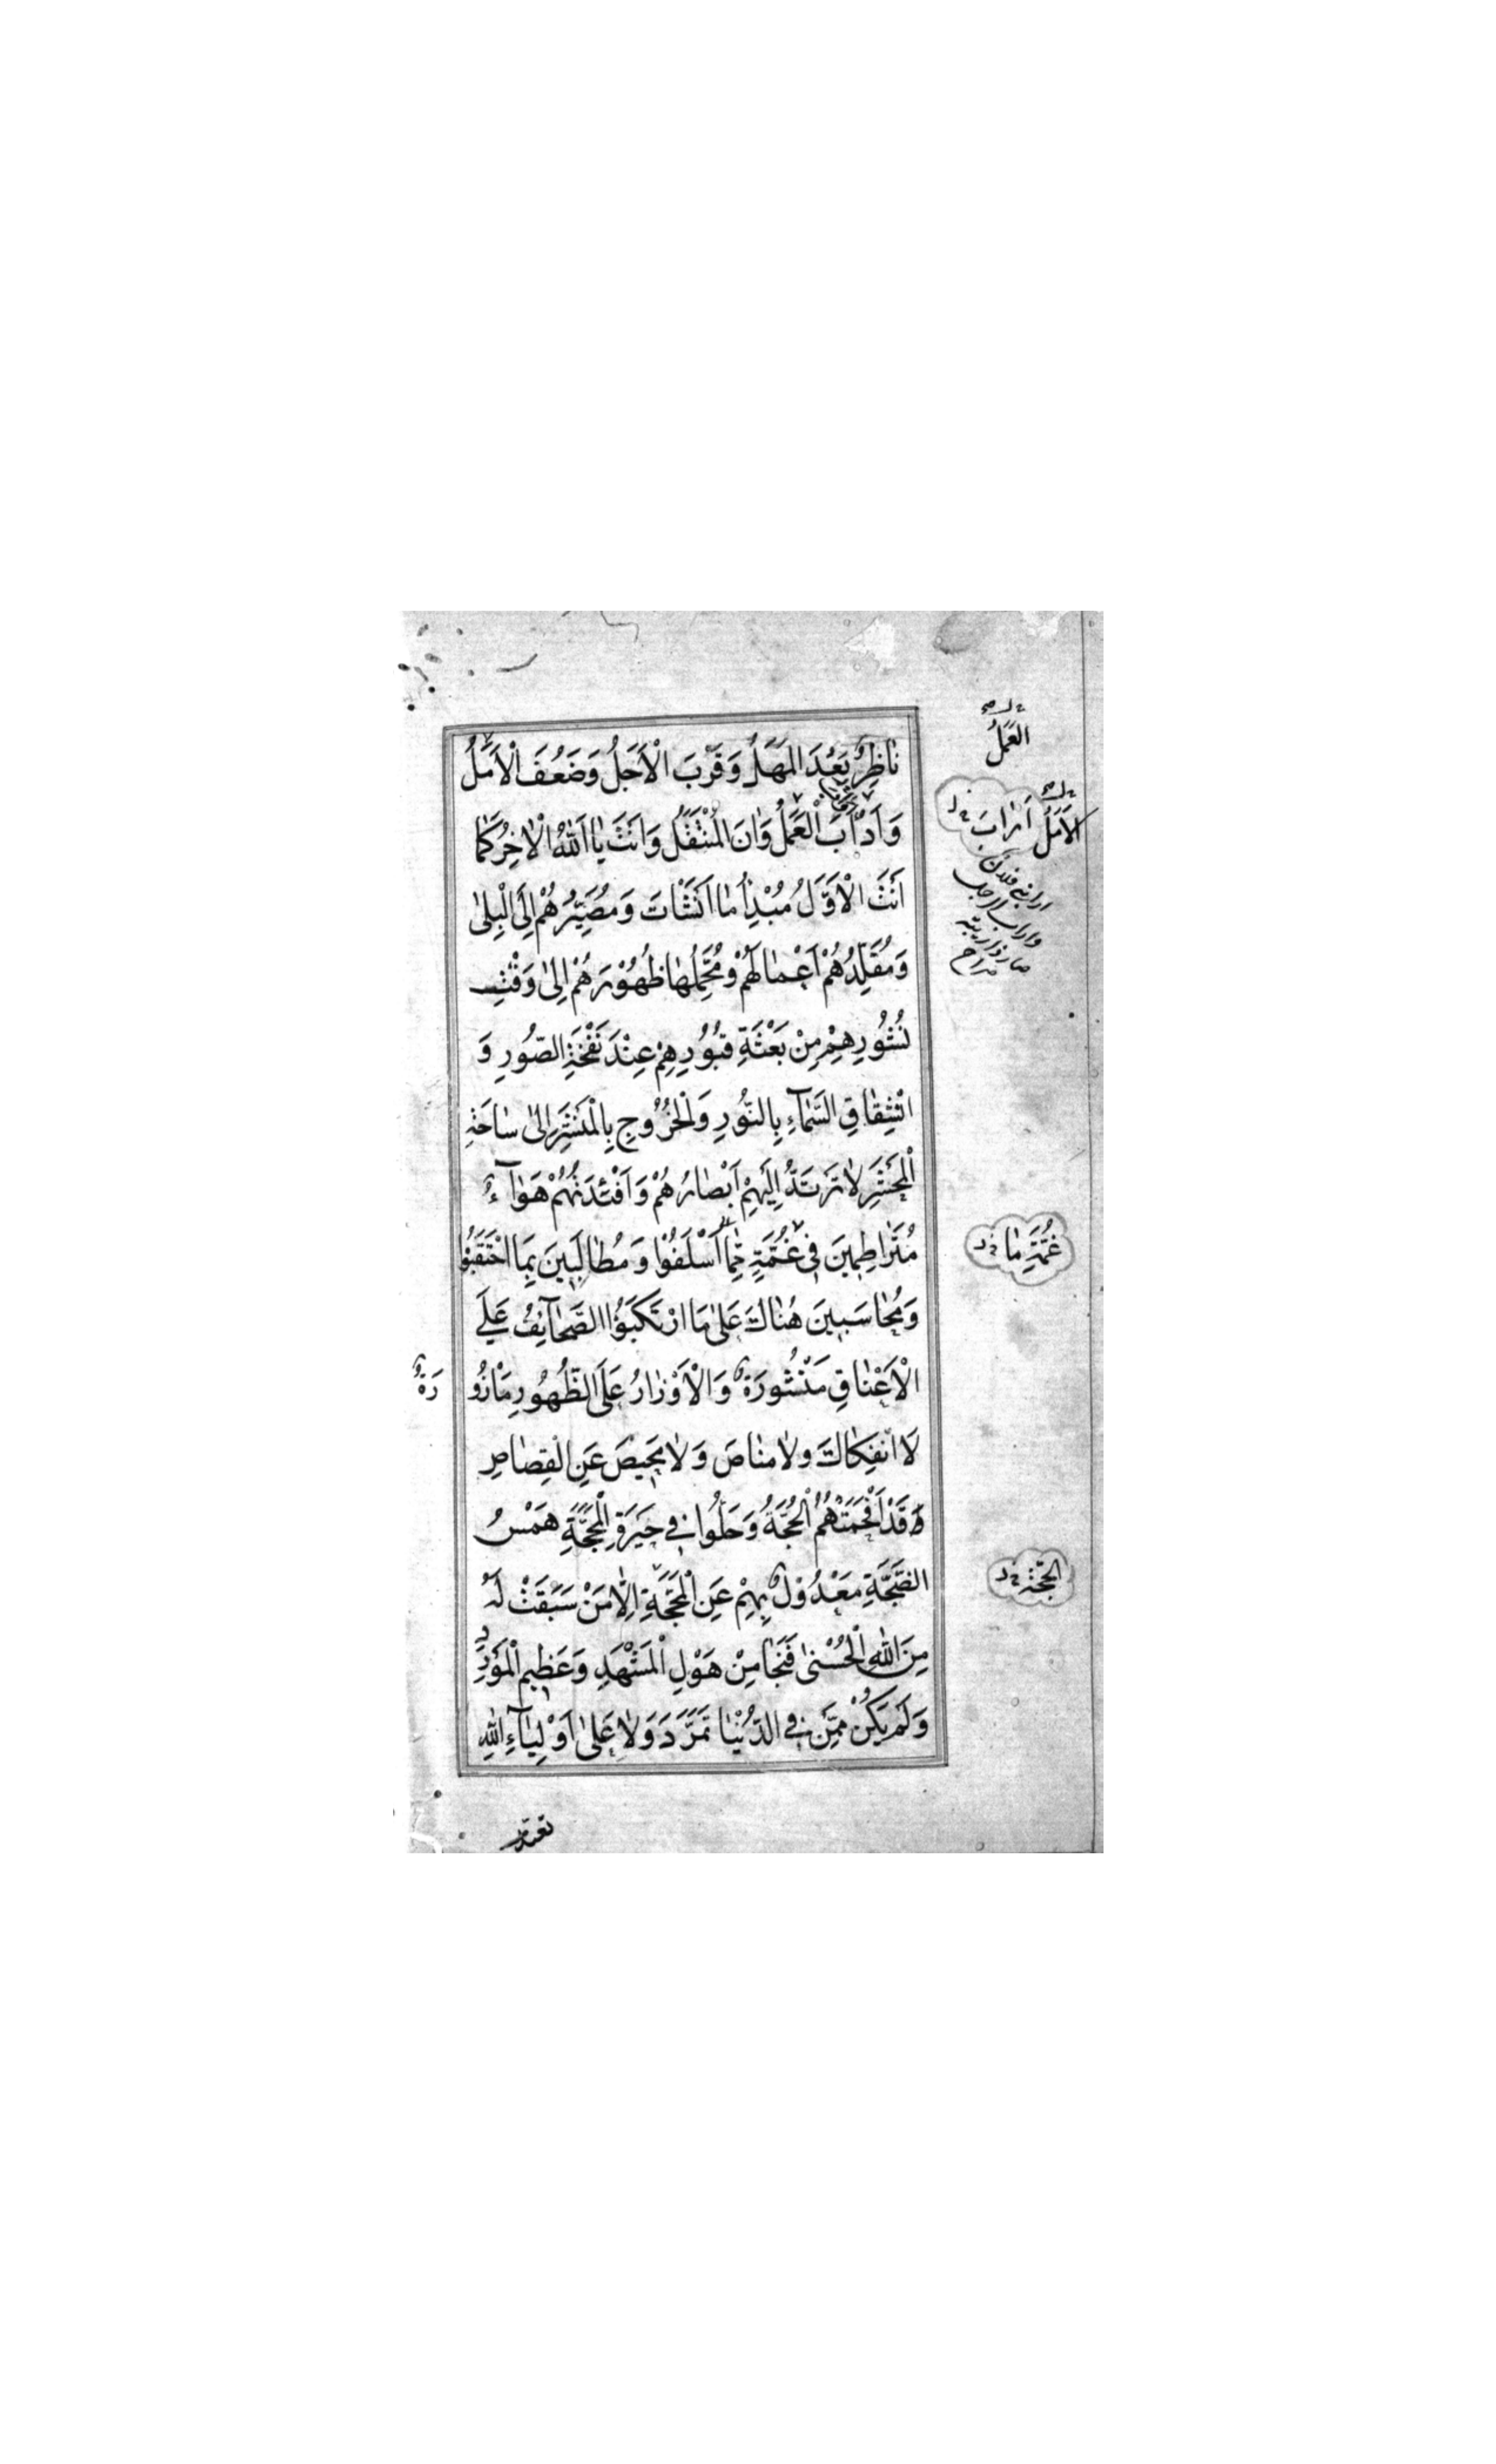 نَاظِرٌ بَعُدَ الْمَهَلُ وَقَرُبَ الْاَجَلُ وَضَعُفَ الْاَمَلُ
وَاَدْأَبَ الْعَمَلُ وَاٰنَ الْمُنْتَقَلُ وَاَنْتَ يٰا اَللّٰهُ الْاٰخِرُ كَمٰا
اَنْتَ الْاَوَّلُ مُبْدِئُ مٰا اَنْشَاْتَ وَمُصَيِّرُهُمْ اِلَى الْبِلىٰ
وَمُقَلِّدُهُمْ اَعْمٰالَهُمْ وَمُحَمِّلُهٰا ظُهُوْرَهُمْ اِلىٰ وَقْتِ
نُشُوْرِهِمْ مِنْ بَعْثَةِ قُبُوْرِهِمْ عِنْدَ نَفْخَةِ الصُّورِ وَ
انْشِقٰاقِ السَّمٰآءِ بِالنُّوْرِ وَالْخُرُوْجِ بِالْمَنْشَرِ اِلىٰ سٰاحَةِ
الْمَحْشَرِ لاٰ تَرْتَدُّ اِلَيْهِمْ اَبْصٰارُهُمْ وَاَفْئِدَتُهُمْ هَوٰآءٌ
مُتَرٰاطِمِيْنَ فِي غُمَّةٍ مِمّٰا اَسْلَفُوْا وَمُطٰالَبِيْنَ بِمَا احْتَقَبُوْا
وَمُحٰاسَبِيْنَ هُنٰاكَ عَلىٰ مَا ارْتَكَبُوْا الصَّحٰآئِفُ عَلَى
الْاَعْنٰاقِ مَنْشُورَةٌ وَالْاَوْزٰارُ عَلَى الظُّهُورِ مَاْزُورَةٌ
لَا انْفِكٰاكَ وَلاٰ مَنٰاصَ وَلاٰ مَحِيْصَ عَنِ الْقِصٰاصِ
قَدْ اَفْحَمَتْهُمُ الْحُجَّةُ وَحَلُّوا فِي حَيْرَةِ الْمَحَجَّةِ هَمْسُ
الضَّجَّةِ مَعْدُوْلٌ بِهِمْ عَنِ الْمَحَجَّةِ اِلّٰا مَنْ سَبَقَتْ لَهُ
مِنَ اللّٰهِ الْحُسْنىٰ فَنَجٰا مِنْ هَوْلِ الْمَشْهَدِ وَعَظِيْمِ الْمَوْرِدِ
وَلَمْ يَكُنْ مِمَّنْ فِي الدُّنْيٰا تَمَرَّدَ وَلاٰ عَلىٰ اَوْلِيٰآءِ اللّٰهِ
العَمَلُ
الاَمَلُ
غُمَّةِ مٰا